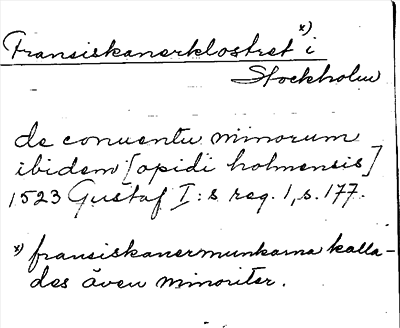 Fransiskanerklostret x) i
Stockholm
de conventu minorum
ibidem [opidi holmensis]
1523 Gustaf I:s reg. 1, s. 177.
x) fransiskanermunkarna kalla-
des även minoriter.